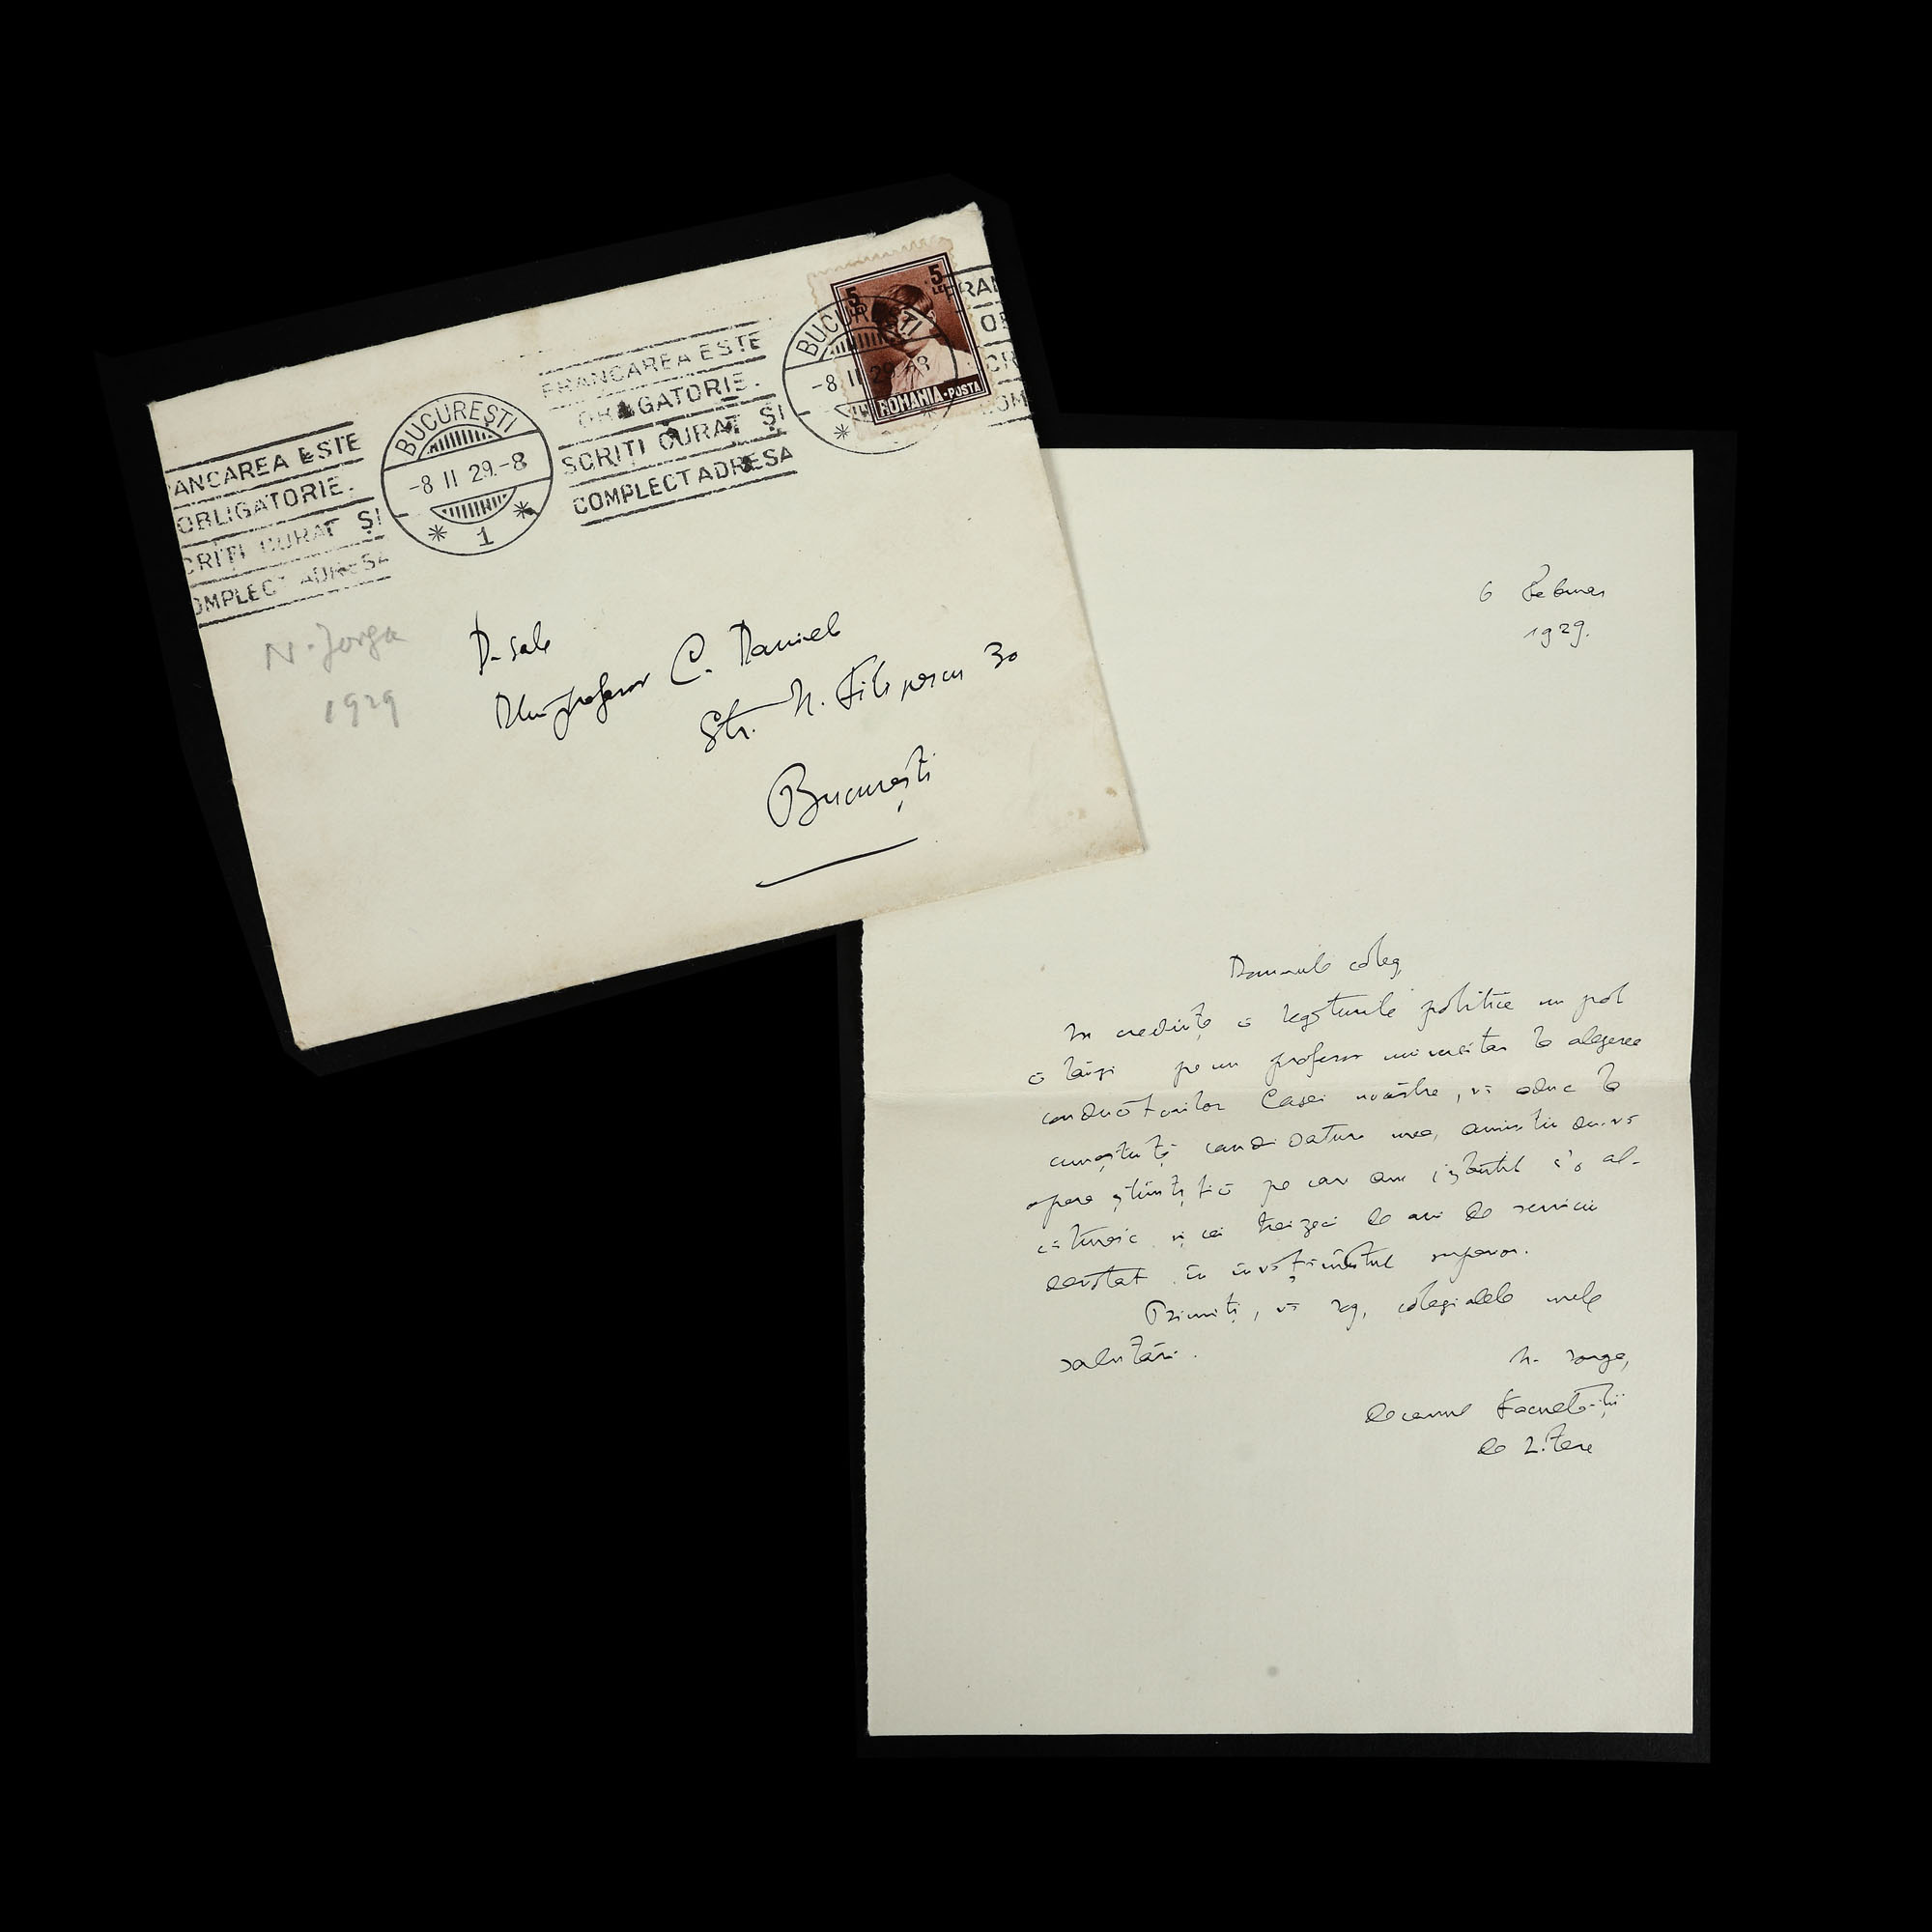 ANCAREA ESTE
OBLIGATORIE.
CRIȚI CURAT ȘI
OMPLECT ADRESA
BUCUREȘTI
-8 II 29.-8
1
FRANCAREA ESTE
OBLIGATORIE.
SCRIȚI CURAT ȘI
COMPLECT ADRESA
BUCUREȘTI
-8 II 29 -8
5
5
LEI
ROMANIA·POSTA
FRAN
OB
CRI
OM
N. Jorga
1929
D-sale
Dlui profesor C. Daniel
Str. N. Filipescu 30
București
6 Februar
1929.
Domnule coleg,
În credință că legăturile politice nu pot
călăuzi pe un profesor universitar la alegerea
conducătorilor Casei noastre, vă aduc la
cunoștință candidatura mea, amintindu-vă
opera științifică pe care am izbutit s'o al-
cătuiesc și cei treizeci de ani de serviciu
devotat în învățămîntul superior.
Primiți, vă rog, colegialele mele
salutări.
N. Iorga,
decanul Facultății
de Litere